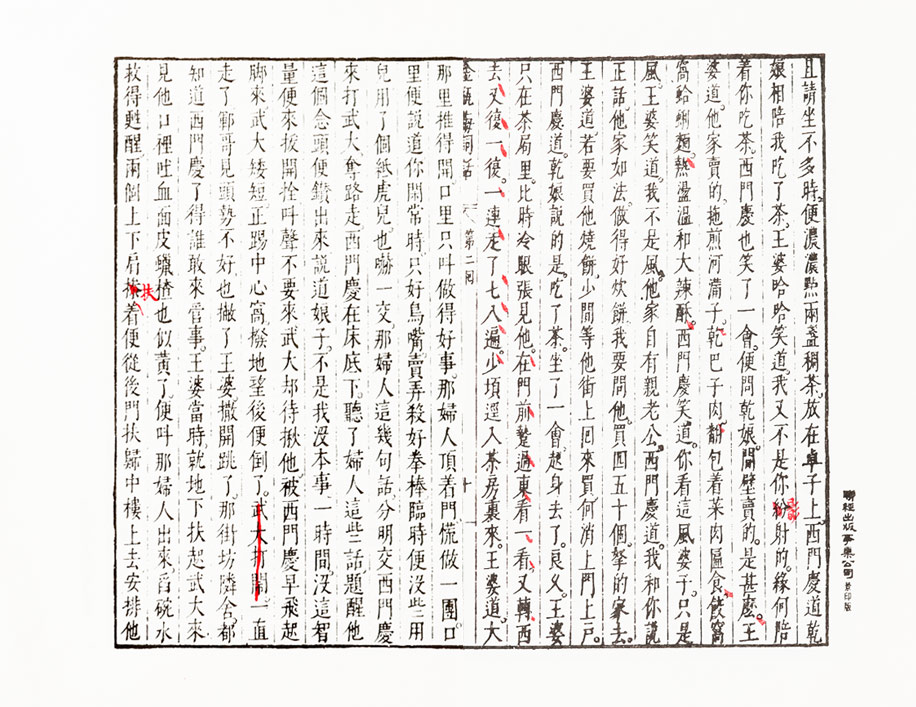 且請坐不多時便濃濃點兩盞稠茶放在卓子上西門慶道乾
娘相陪我吃了茶王婆哈哈笑道我又不是你影射的緣何陪
着你吃茶西門慶也笑了一會便問乾娘間壁賣的是甚麼王
婆道他家賣的拖煎河漏子乾巴子肉翻包着菜肉匾食餃窩
窩蛤蜊麵熱盪溫和大辣酥西門慶笑道你看這風婆子只是
風王婆笑道我不是風他家自有親老公西門慶道我和你說
正話他家如法做得好炊餅我要問他買四五十個拏的家去
王婆道若要買他燒餅少間等他街上囘來買何消上門上戶
西門慶道乾娘說的是吃了茶坐了一會起身去了良久王婆
只在茶局里比時冷眼張見他在門前踅過東看一看又轉西
去又復一復一連走了七八遍少頃逕入茶房裏來王婆道大
金瓶梅詞話
第二囘
十
那里推得開口里只叫做得好事那婦人頂着門慌做一團口
里便說道你閙常時只好鳥嘴賣弄殺好拳棒臨時便沒些用
兒用了個紙虎兒也嚇一交那婦人這幾句話分明交西門慶
來打武大奪路走西門慶在床底下聽了婦人這些話題醒他
這個念頭便鑽出來說道娘子不是我沒本事一時間沒這智
量便來拔開拴叫聲不要來武大却待揪他被西門慶早飛起
脚來武大矮短正踢中心窩撥地望後便倒了武大打閙一直
走了鄆哥見頭勢不好也撇了王婆撒開跳了那街坊隣舍都
知道西門慶了得誰敢來管事王婆當時就地下扶起武大來
見他口裡吐血面皮蠟楂也似黃了便叫那婦人出來舀碗水
救得甦醒兩個上下肩扶着便從後門扶歸中樓上去安排他
聯經出版事業公司 景印版